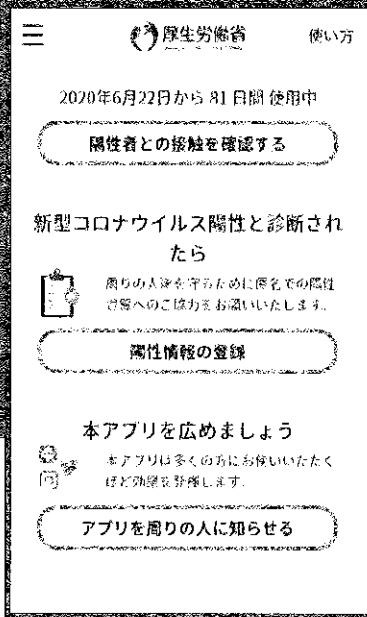 厚生労働省
使い方
2020年6月22日から 81 日間 使用中
陽性者との接触を確認する
新型コロナウイルス陽性と診断され
たら
周りの人々を守るために匿名での陽性
登録へのご協力をお願いいたします。
陽性情報の登録
本アプリを広めましょう
本アプリは多くの方にお使いいただく
ほど効果を発揮します。
アプリを周りの人に知らせる